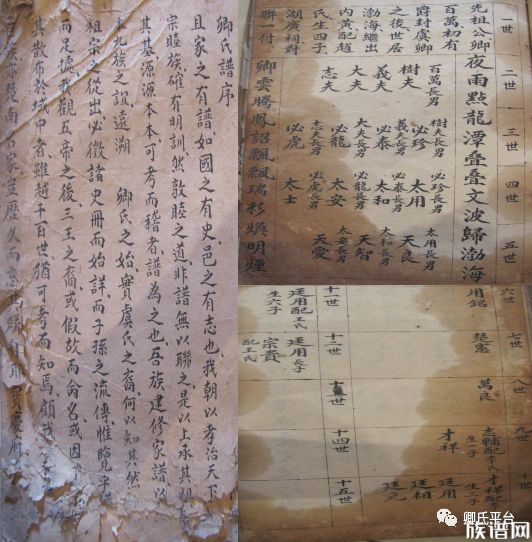 卿氏譜序
且家之有譜如國之有史邑之有志也我朝以孝治天下
宗睦族確有明訓然敦睦之道非譜無以聯之是以上承其祖
其基源源本本可考而稽者譜為之也吾族建修家譜以
本九族之誼遠溯 卿氏之始實虞氏之裔何以知其然
祖宗之從出必徵諸史冊而始詳而子孫之流傳惟覽乎譜
而足據我觀五帝之後三王之裔或假故而命名或因
其散布於域中者雖越千百世猶可考而知焉顧我
楚南
一世
二世
三世
四世
五世
先祖公卿
百萬初有
爵封虞卿
之後世居
渤海繼出
内黄配趙
氏生四子
湖廣祠對
聯一付
夜雨點龍潭叠叠文波歸渤海
卿雲騰鳳詔飄飄瑞彩煥明煙
百萬長男
樹夫
義夫
大夫
志夫
樹夫長男
必珍
義夫長男
必泰
大夫長男
必龍
志夫長男
必虎
必珍長男
太用
必泰長男
太和
必龍長男
太安
必虎長男
太士
太用長男
天良
太和長男
天智
太安長男
天愛
六世
用銘
七世
楚憲
八世
萬良
九世
志輔配李氏
生一子
才祥
十世
才祥配
生三子
廷用
廷相
廷元
十一世
廷用
配王氏
生六子
十二世
廷用長子
宗貴
配王氏
十三世
十四世
十五世
卿氏平台
族谱网